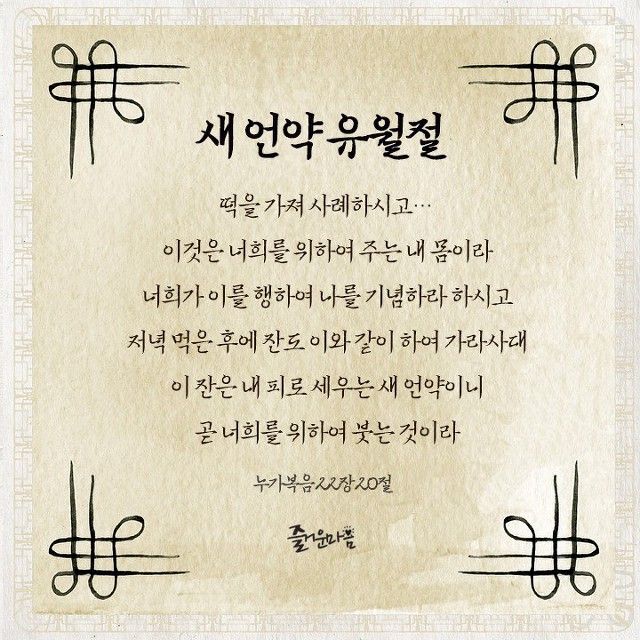 새 언약 유월절
떡을 가져 사례하시고…
이것은 너희를 위하여 주는 내 몸이라
너희가 이를 행하여 나를 기념하라 하시고
저녁 먹은 후에 잔도 이와 같이 하여 가라사대
이 잔은 내 피로 세우는 새 언약이니
곧 너희를 위하여 붓는 것이라
누가복음 22장 20절
즐거운마음